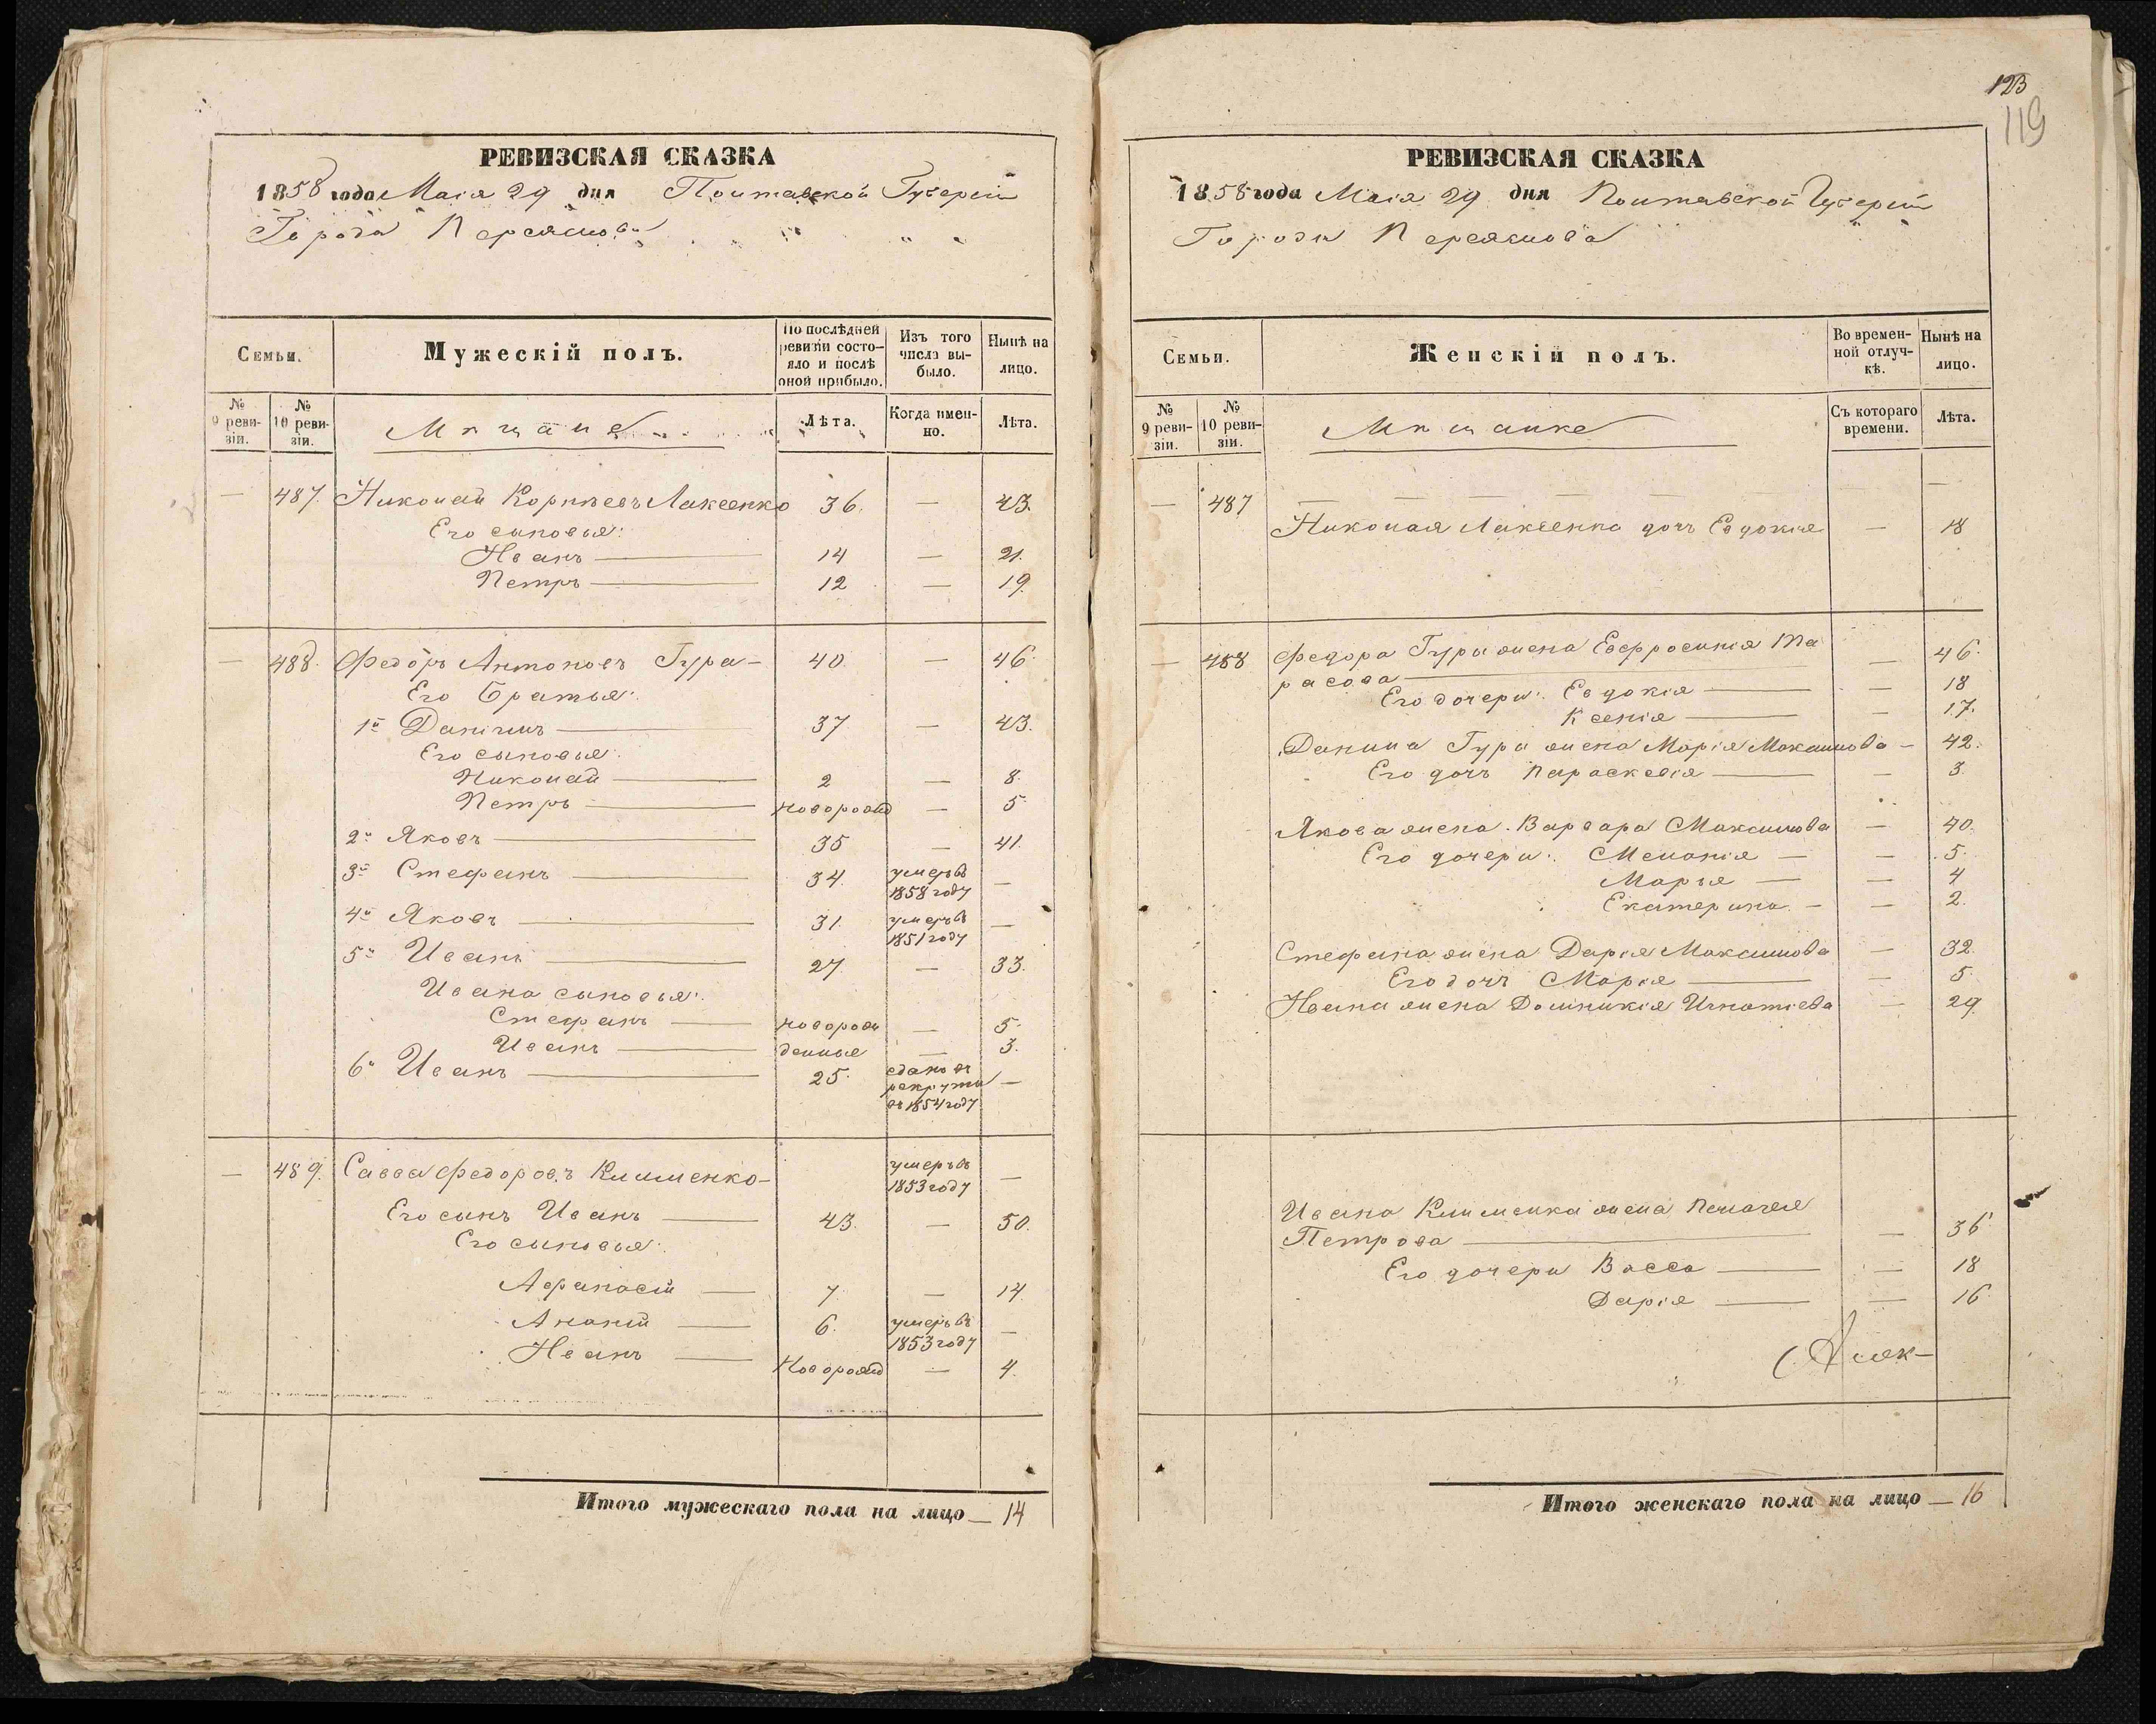 РЕВИЗСКАЯ СКАЗКА
1858 года Маія 29 дня Полтавской Губерніи
Города Переяслова
Семьи.
Мужескій полъ.
По послѣдней ревизіи состояло и послѣ оной прибыло.
Изъ того числа выбыло.
Нынѣ на лицо.
№ 9 ревизіи.
№ 10 ревизіи.
Мѣщане
Лѣта.
Когда именно.
Лѣта.
— 487. Николай Корнѣевъ Лакеенко 36. — 43.
Его сыновья:
Иванъ — 14 — 21.
Петръ — 12 — 19.
— 488. Федоръ Антоновъ Гура — 40 — 46.
Его Братья:
1й Даніилъ — 37 — 43.
Его сыновья:
Николай — 2 — 8.
Петръ — новорожд — 5.
2й Яковъ — 35 — 41.
3й Стефанъ — 34. умеръ въ 1858 году —
4й Яковъ — 31. умеръ въ 1851 году —
5й Иванъ — 27 — 33.
Ивана сыновья:
Стефанъ — новорож — 5.
Иванъ — денные — 3.
6й Иванъ — 25. сданъ въ рекруты въ 1854 году —
— 489. Савва Федоровъ Клименко — умеръ въ 1853 году —
Его сынъ Иванъ — 43. — 50.
Его сыновья:
Афанасій — 7. — 14.
Ананій — 6. умеръ въ 1853 году —
Иванъ — Новорожд — 4.
Итого мужескаго пола на лицо — 14
123
119
РЕВИЗСКАЯ СКАЗКА
1858 года Маія 29 дня Полтавской Губерніи
Города Переяслова
Семьи.
Женскій полъ.
Во временной отлучкѣ.
Нынѣ на лицо.
№ 9 ревизіи.
№ 10 ревизіи.
Мѣщанке
Съ котораго времени.
Лѣта.
— 487 — — — — — — —
Николая Лакеенка дочь Евдокія — 18
— 488 Федора Гуры жена Евфросинія Та
расова — — 46.
Его дочери: Евдокія — — 18
Ксенія — — 17.
Данила Гуры жена Марія Максимова — 42.
Его дочь Параскевія — — 3.
Якова жена Варвара Максимова — 40.
Его дочери: Меланія — — 5.
Марья — — 4
Екатерина — — 2.
Стефана жена Дарія Максимова — 32.
Его дочь Марія — — 5.
Ивана жена Домникія Игнатіева — 29.
Ивана Клименка жена Пелагея
Петрова — — 36.
Его дочери Васса — — 18
Дарія — — 16.
Итого женскаго пола на лицо — 16